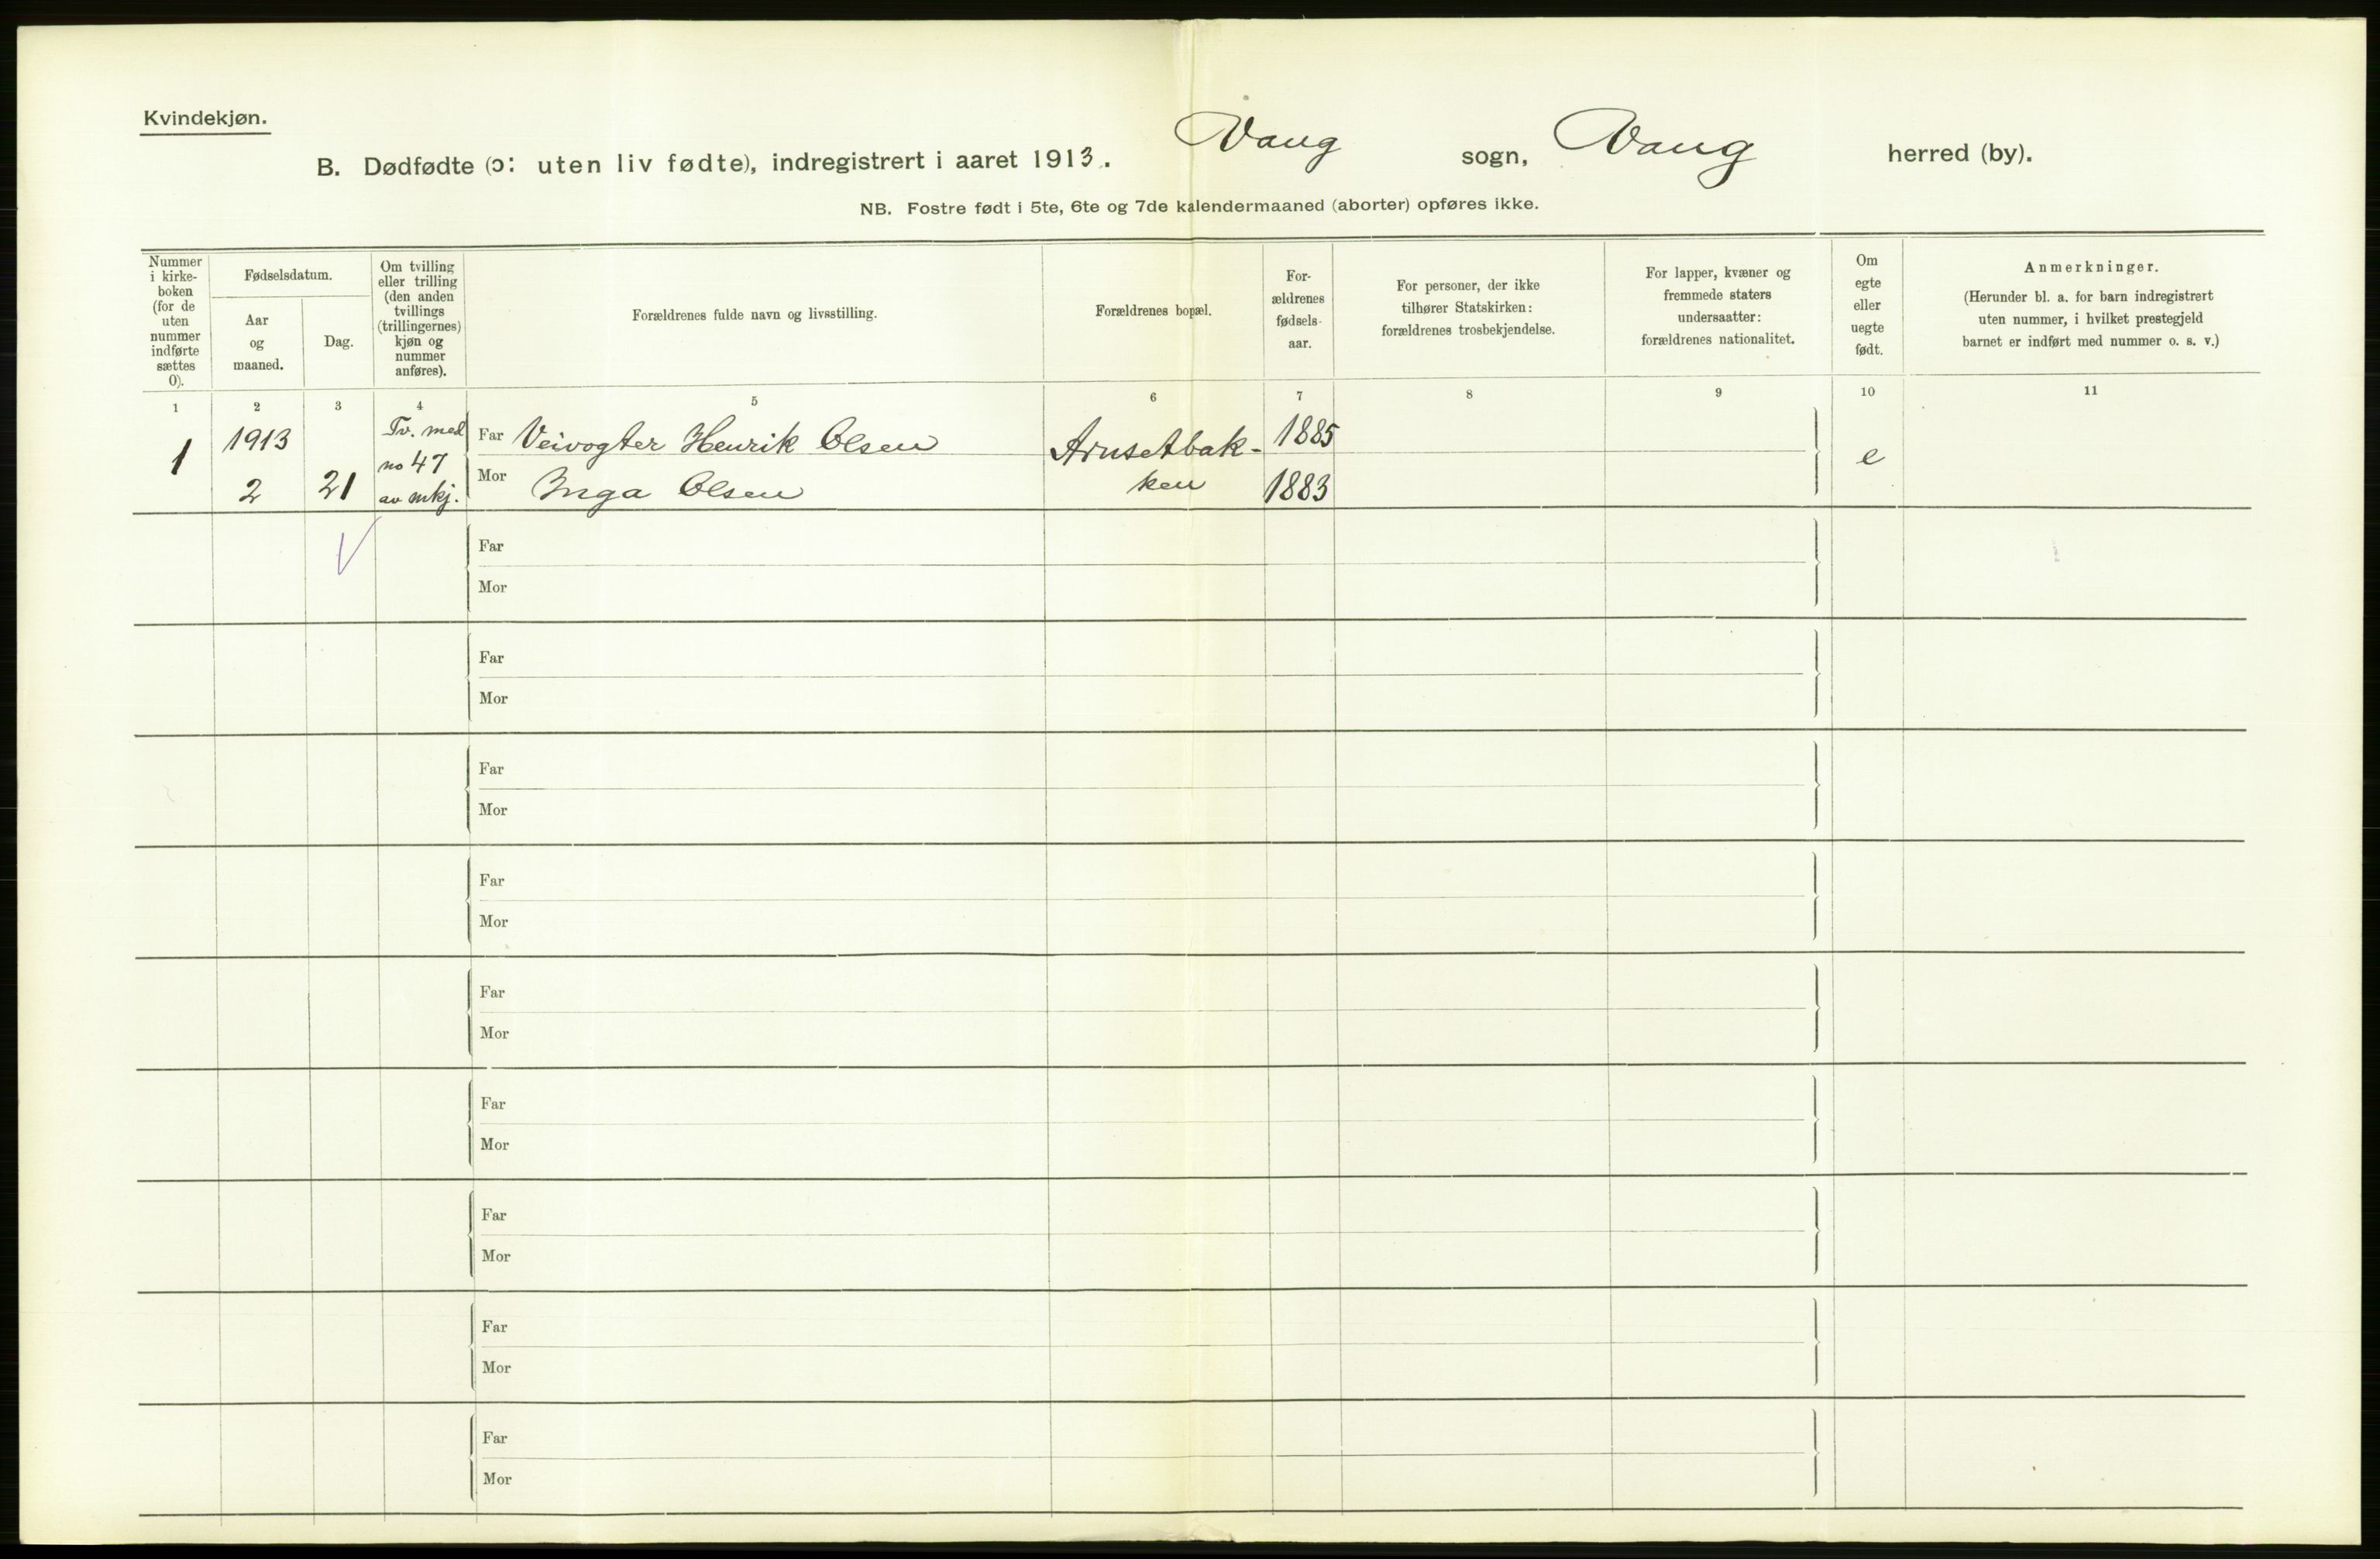 Kvindekjøn.
B. Dødfødte (ɔ: uten liv fødte), indregistrert i aaret 1913. Vang sogn, Vang herred (by).
NB. Fostre født i 5te, 6te og 7de kalendermaaned (aborter) opføres ikke.
Nummer
i kirke-
boken
(for de
uten
nummer
indførte
sættes
0).
Fødselsdatum.
Aar
og
maaned.
Dag.
Om tvilling
eller trilling
(den anden
tvillings
(trillingernes)
kjøn og
nummer
anføres).
Forældrenes fulde navn og livsstilling.
Forældrenes bopæl.
For-
ældrenes
fødsels-
aar.
For personer, der ikke
tilhører Statskirken:
forældrenes trosbekjendelse.
For lapper, kvæner og
fremmede staters
undersaatter:
forældrenes nationalitet.
Om
egte
eller
uegte
født.
Anmerkninger.
(Herunder bl. a. for barn indregistrert
uten nummer, i hvilket prestegjeld
barnet er indført med nummer o. s. v.)
1 2 3 4 5 6 7 8 9 10 11
1
1913
2
21
Tv. med
no 47
av mkj.
Far Veivogter Henrik Olsen
Mor Inga Olsen
Arnsetbak-
ken
1885
1883
e
Far
Mor
Far
Mor
Far
Mor
Far
Mor
Far
Mor
Far
Mor
Far
Mor
Far
Mor
Far
Mor